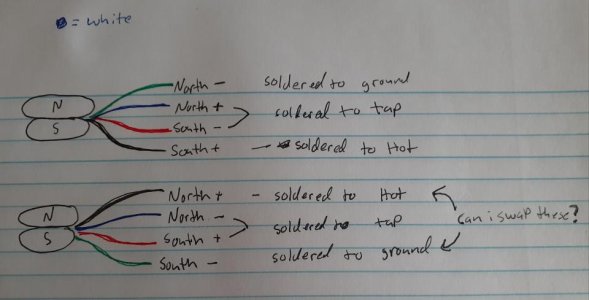 = white
North - soldered to ground
N North + soldered to tap
S South -
South + - soldered to Hot
North + - soldered to Hot
N North - soldered to tap can i swap these?
S South +
South - soldered to ground